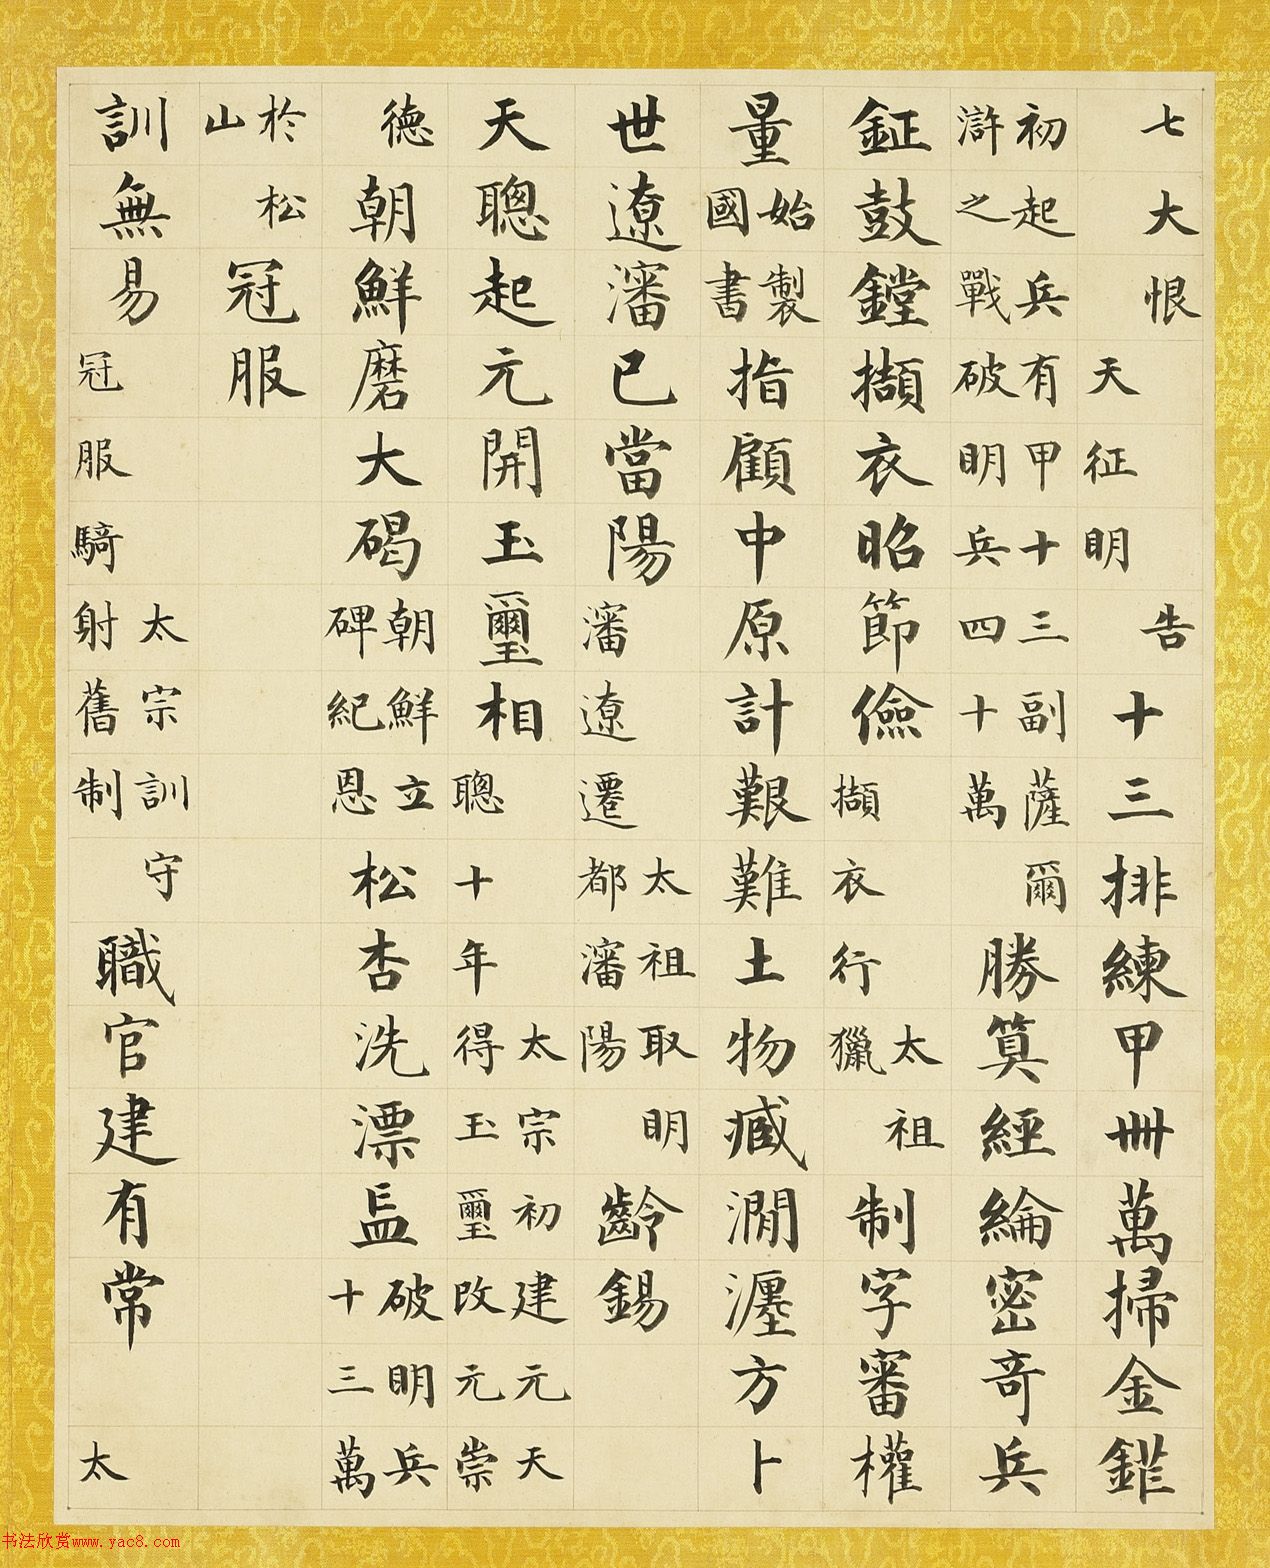 七大恨告天征明十三排練甲卌萬掃金
初起兵有甲十三副薩爾滸之戰破明兵四十萬勝算經綸密奇兵
鉦鼓鏜擷衣昭節儉太祖擷衣行獵制字審權
量始製國書指顧中原計艱難土物臧澗瀍方卜
世遼瀋已當陽太祖取明瀋遼遷都瀋陽齡錫
天聰起元開玉璽相太宗初建元天聰十年得玉璽改元崇
德朝鮮磨大碣朝鮮立碑紀恩松杏洗漂破明兵十三萬
於松山冠服
訓無易太宗訓守冠服騎射舊制職官建有常太
书法欣赏www.yac8.com